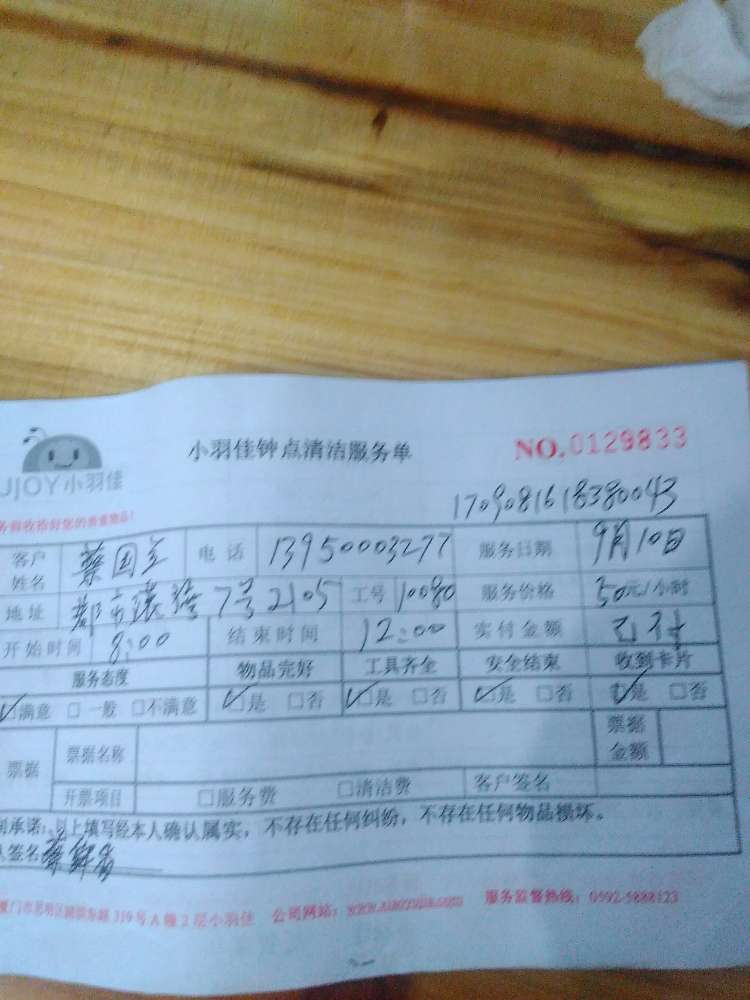 小羽佳钟点清洁服务单
NO.0129833
UJOY小羽佳
1709081618380043
客户姓名 蔡国 电话 13950003277 服务日期 9月10日
地址 7号2105 工号 10080 服务价格 50元/小时
开始时间 8:00 结束时间 12:00 实付金额 已付
服务态度 物品完好 工具齐全 安全结束 收到卡片
☑满意 □一般 □不满意 ☑是 □否 ☑是 □否 ☑是 □否 ☑是 □否
票据 票据名称 票据金额
开票项目 □服务费 □清洁费 客户签名
承诺：以上填写经本人确认属实，不存在任何纠纷，不存在任何物品损坏。
签名 蔡
厦门市思明区 319号A幢2层小羽佳 公司网站： 服务监督热线：0592-5888123